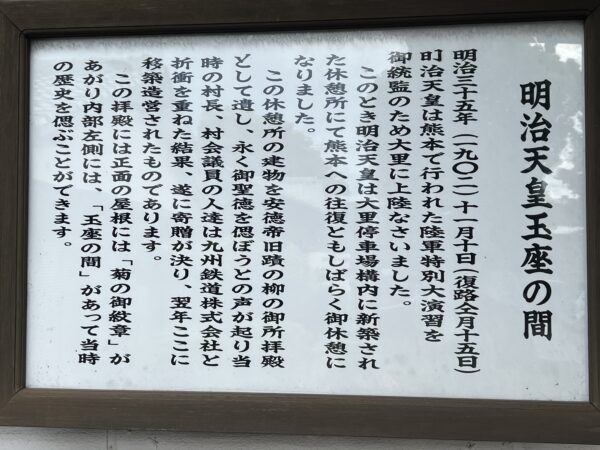 明治天皇玉座の間
明治三十五年（一九〇二）十一月十日（復路仝月十五日）
明治天皇は熊本で行われた陸軍特別大演習を
御統監のため大里に上陸なさいました。
このとき明治天皇は大里停車場構内に新築され
た休憩所にて熊本への往復ともしばらく御休憩に
なりました。
この休憩所の建物を安徳帝旧蹟の柳の御所拝殿
として遺し、永く御聖徳を偲ぼうとの声が起り当
時の村長、村会議員の人達は九州鉄道株式会社と
折衝を重ねた結果、遂に寄贈が決り、翌年ここに
移築造営されたものであります。
この拝殿には正面の屋根には「菊の御紋章」が
あがり内部左側には、「玉座の間」があって当時
の歴史を偲ぶことができます。